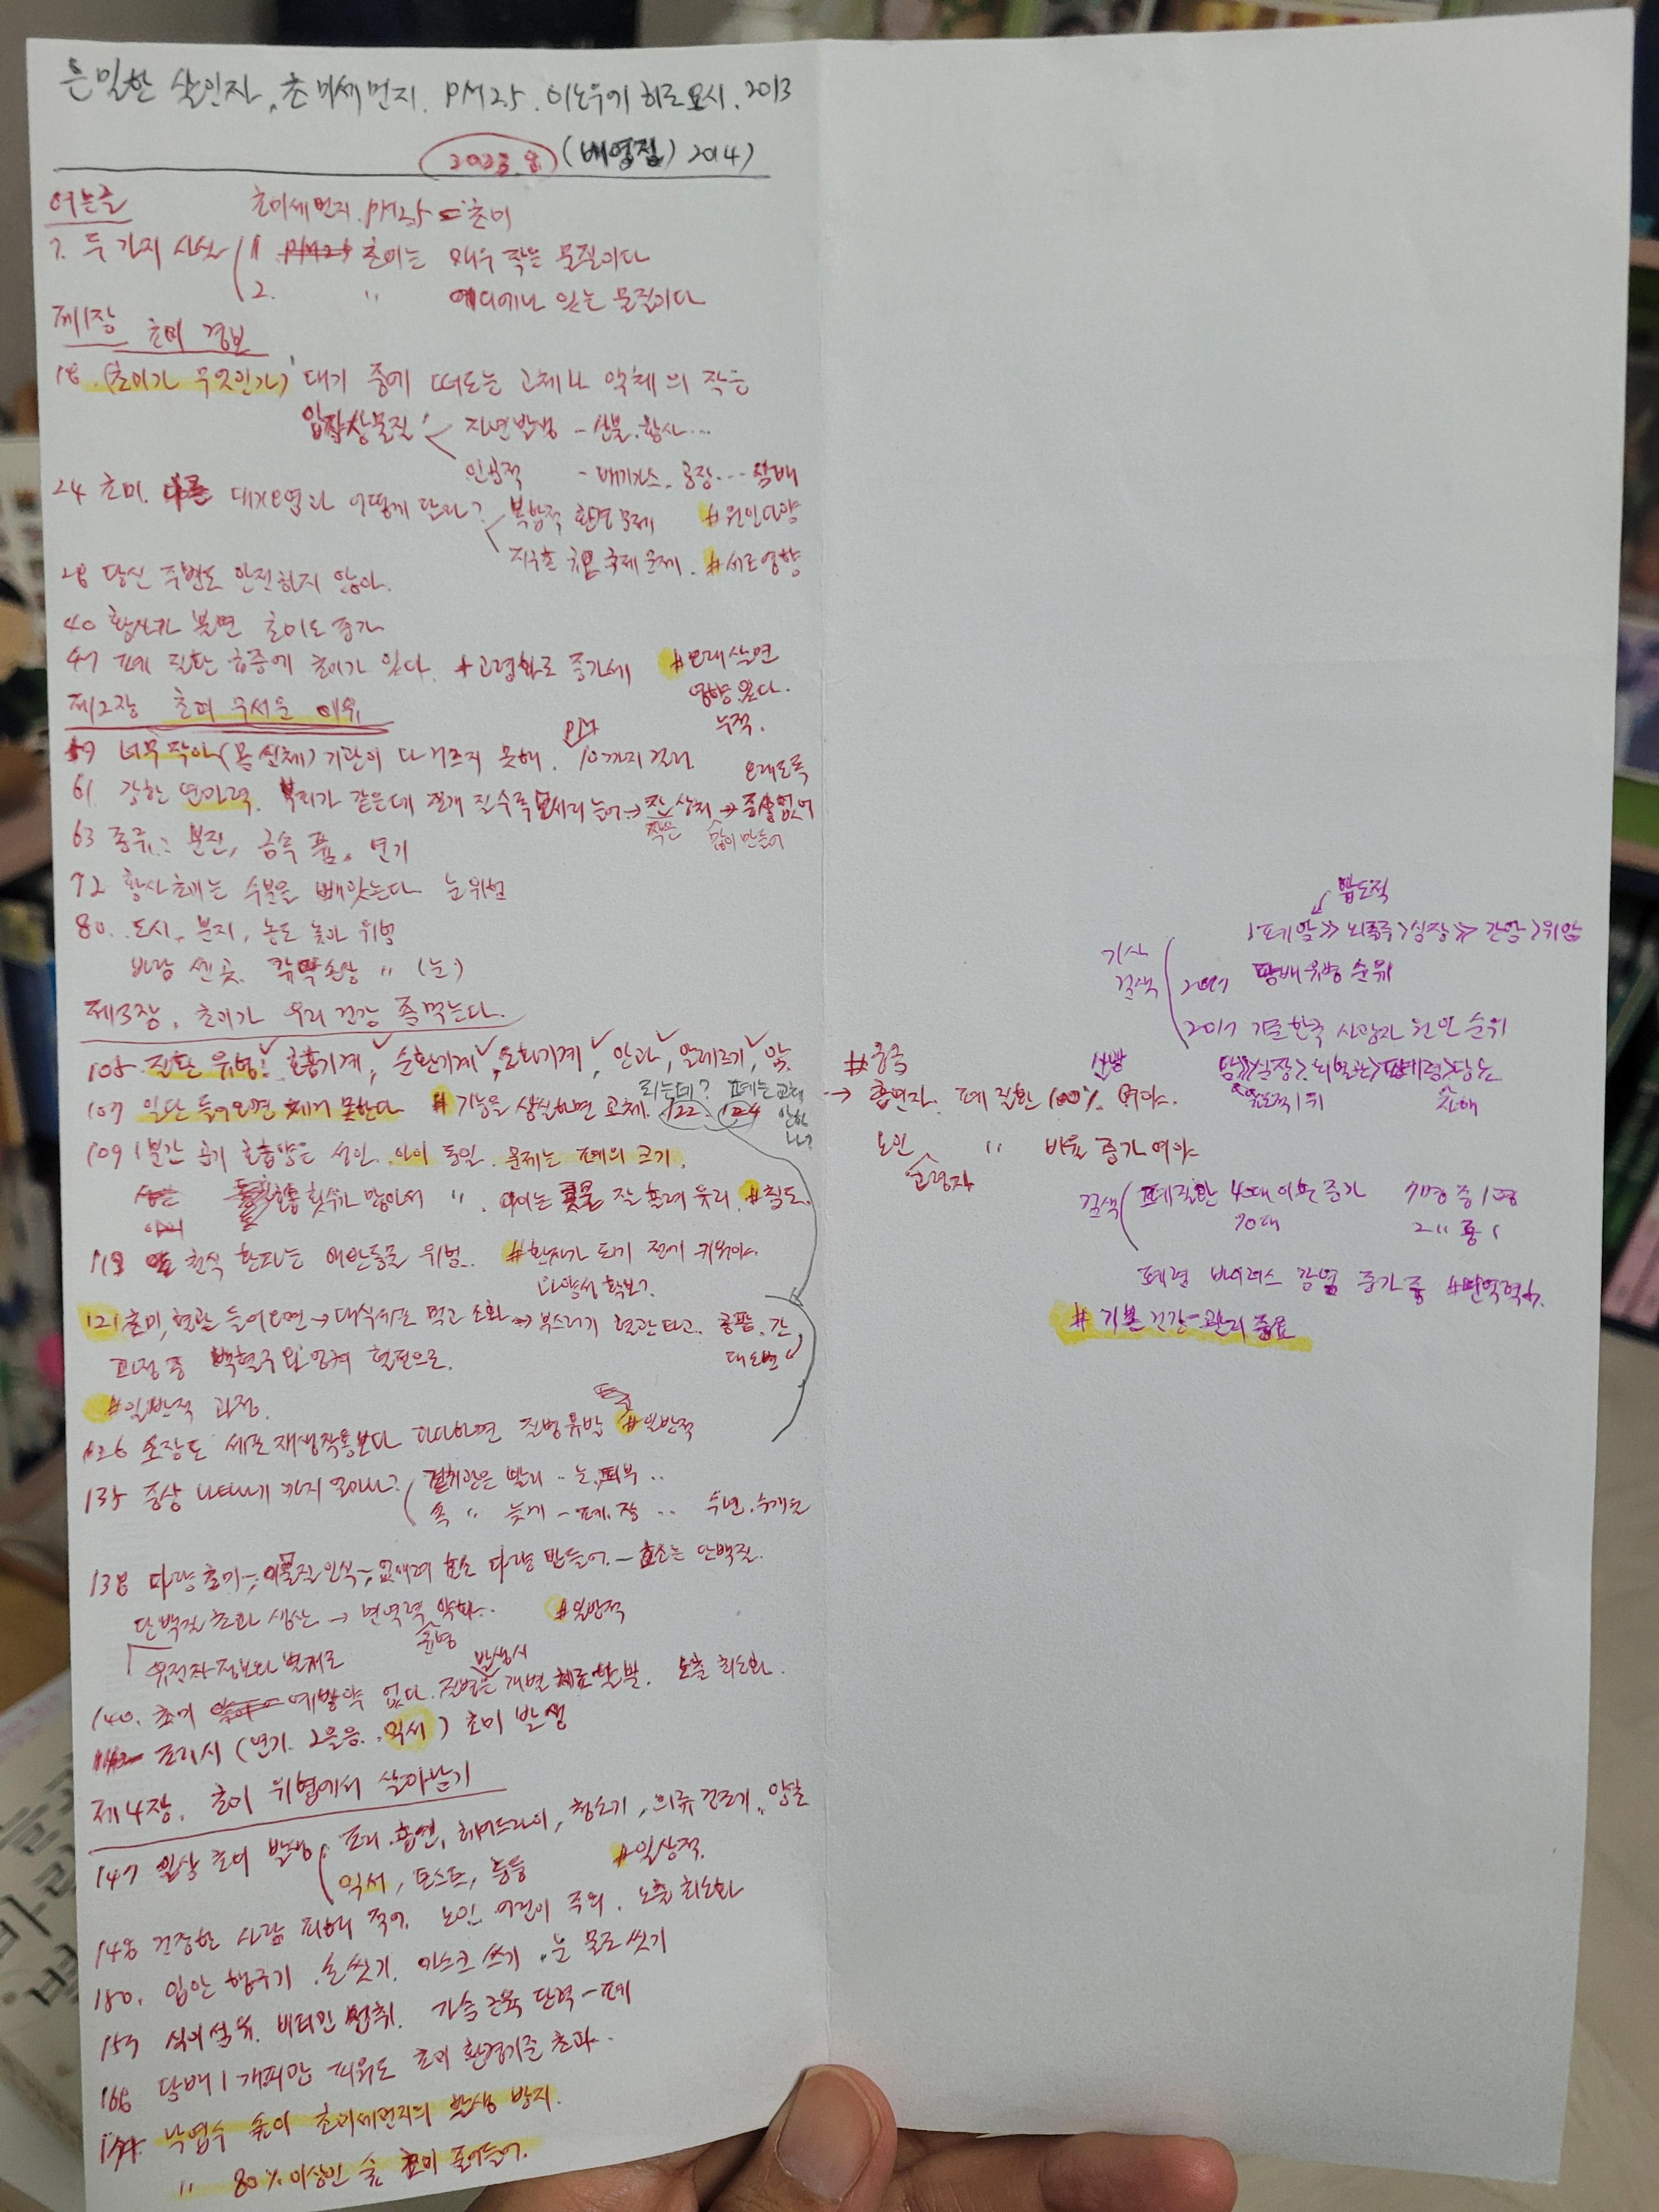 은밀한 살인자, 초미세먼지. PM2.5. 이노우에 히로요시. 2013
2023. 8. (배영진) 2014)
여는글 초미세먼지. PM2.5 = 초미
7. 두가지 사실 1. 초미는 매우 작은 물질이다
2. " 어디에나 있는 물질이다
제1장 초미 경보
18. (초미가 무엇인가) 대기 중에 떠도는 고체나 액체의 작은
입자상물질 자연발생 - 산불. 황사...
인공적 - 배기가스. 공장... 담배
24 초미. 대기오염과 어떻게 달라? 복합적 환경문제 #원인다양
지구촌 규모 국제문제. #서로영향
28 당신 주변도 안전하지 않아.
40 황사가 불면 초미도 증가
47 폐 질환 급증에 초미가 있다. +고령화로 증가세 #오래살면
영향있다.
누적.
제2장 초미 무서운 이유
59 너무 작아(몸 신체) 기관이 다 거르지 못해. PM 10까지 걸러
61. 강한 연마력. 부피가 같은데 쪼개 질수록 모서리 늘어→작은 상처→증상없어 오래도록
많이 만들어
63 종류: 분진, 금속 품. 연기
72 황사 초미는 수분을 빼앗는다 눈위험
80. 도시, 분지, 농도 높아 위험
바람 센곳. 각막손상 " (눈)
제3장. 초미가 우리 건강 좀먹는다.
105. 질환 위험! 호흡기계, 순환기계, 소화기계, 안과, 알레르기, 암.
107 일단 들어오면 제거 못한다 #기능을 상실하면 교체. 122. 124
되는데? 폐는 교체 안하나?
109 1분간 공기 호흡량은 성인. 아이 동일. 문제는 폐의 크기.
횟수가 많아서 ". 아이는 콧물 잘 흘려 유리. #침도.
118 천식 환자는 애완동물 위험. #환자가 되기 전에 키워야.
다양성 확보?
121 초미, 혈관 들어오면→대식세포 먹고 소화→부스러기 혈관타고. 콩팥. 간,
대소변
과정 중 백혈구와 엉켜 혈전으로.
#일반적 과정.
126 소장도 세포 재생작용보다 과다하면 질병유발 #일반적
135 증상 나타나기 까지 얼마나? 겉기관은 빨리 - 눈, 피부..
속 " 늦게 - 폐. 장.. 수년. 수개월
138 다량초미→이물질 인식→없애려 효소 다량 만들어. - 효소는 단백질.
단백질 초과 생산→면역력 약화.. #일반적
균형
유전자 정보와 별개로
140. 초미 예방약 없다. 질병은 발생시 개별 치료할 뿐. 노출 최소화.
조리시 (연기. 그을음. 믹서) 초미 발생
제4장. 초미 위협에서 살아남기
147 일상 초미 발생 조리. 흡연, 헤어드라이, 청소기, 의류건조기, 양초
믹서, 토스트, 등등 #일상적.
148 건강한 사람 피해 적어. 노인. 어린이 주의. 노출 최소화
150. 입안 헹구기. 손씻기. 마스크 쓰기. 눈 물로씻기
157 식이섬유. 비타민 섭취. 가슴근육 단력 - 폐
168 담배 1개피만 피워도 초미 환경기준 초과.
낙엽수 숲이 초미세먼지의 발생 방지.
" 80% 이상인 숲 초미 줄어들어.
압도적
1 폐암≫뇌졸중>심장≫간암>위암
기사 검색 담배 유병 순위
2017 기준 한국 사망자 원인 순위
암≫심장>뇌혈관>폐렴>당뇨
압도적1위 자해
#중국
→ 흡연자. 폐 질환 100% 여야.
노인 " 비율 증가여야
고령자
검색 폐질환 40대 이후 증가 7명 중 1명
70대 2 " 중 1
폐렴 바이러스 감염 증가 중 #면역력↓.
#기본건강-관리중요